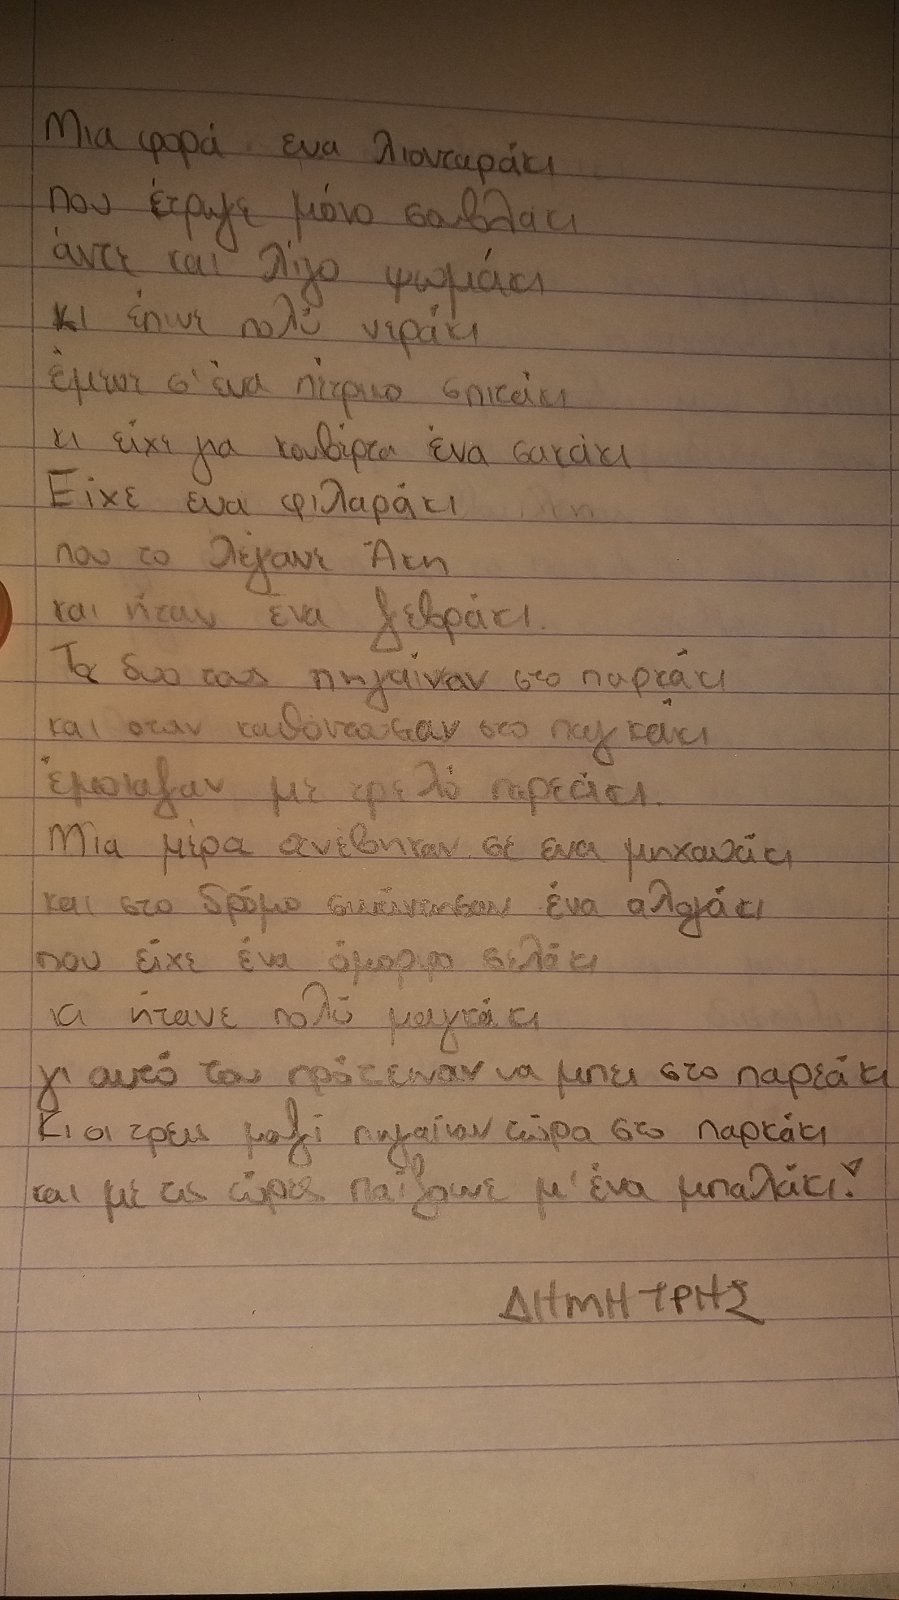 Μια φορά ενα λιονταράκι
που έτρωγε μόνο σουβλάκι
άντε και λίγο ψωμάκι
κι έπινε πολύ νεράκι
έμενε σ' ένα πέτρινο σπιτάκι
κι είχε για κουβέρτα ένα σακάκι
Είχε ενα φιλαράκι
που το λέγανε Άκη
και ήταν ένα ζεβράκι.
Τα δυο τους πηγαίναν στο παρκάκι
και οταν καθόντουσαν στο παγκάκι
έμοιαζαν με τρελό παρεάκι.
Μία μέρα ανέβηκαν σε ενα μηχανάκι
και στο δρόμο συνάντησαν ένα αλογάκι
που είχε ένα όμορφο σελάκι
κι ήτανε πολύ μαγκάκι
γι αυτό του πρότειναν να μπει στο παρεάκι
Κι οι τρεις μαζί πηγαίναν τώρα στο παρκάκι
και με τις ώρες παίζουνε μ' ένα μπαλάκι!
ΔΗΜΗΤΡΗΣ